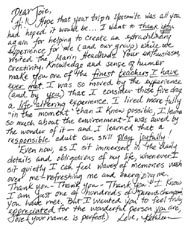 Dear Joie,
Hi. Hope that your trip to Yosemite was all you
had hoped it would be... I want to thank you
again for helping to create an astonishing
experience for me (and our group) while we
visited the Marin Headlands. Your enthusiasm,
creativity, knowledge and sense of humor
make you one of the finest teachers I have
ever met. I was so moved by the experience
(and by you) that I consider those five days
a life-altering experience. I lived more fully
"in the moment" than I knew possible, I learned
so much about the environment - I was awed by
the wonder of it - and, I learned that a
responsible adult can still play joyfully.
Even now, as I sit immersed in the daily
details and obligations of my life, whenever I
sit quietly I can feel waves of memories wash
over me - refreshing me and energizing me.
Thank you - Thank you - Thank you! I know
I am just one of hundreds of
you have met, but I wanted you to feel truly
appreciated for the wonderful person you are.
(and your name is perfect) Love,